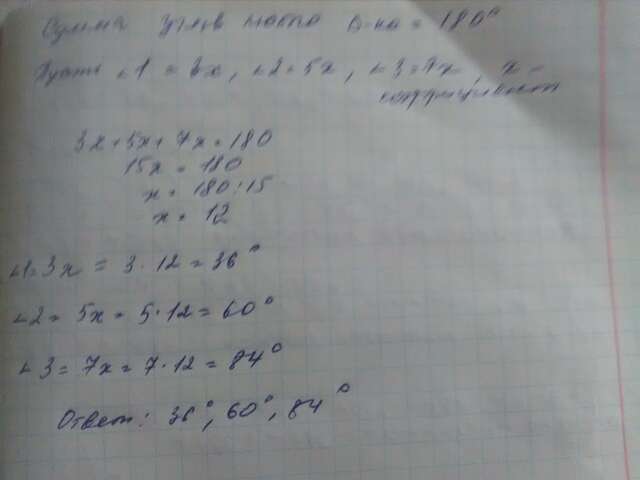 Сумма углов любого Δ-ка = 180°
Пусть ∠1 = 3x, ∠2 = 5x, ∠3 = 7x, x -
коэффициент
3x + 5x + 7x = 180
15x = 180
x = 180 : 15
x = 12
∠1 = 3x = 3 · 12 = 36°
∠2 = 5x = 5 · 12 = 60°
∠3 = 7x = 7 · 12 = 84°
Ответ: 36°, 60°, 84°